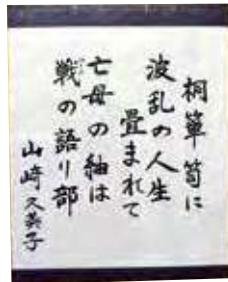 桐簞笥に
波乱の人生
畳まれて
亡母の紬は
戦の語り部
山﨑久美子